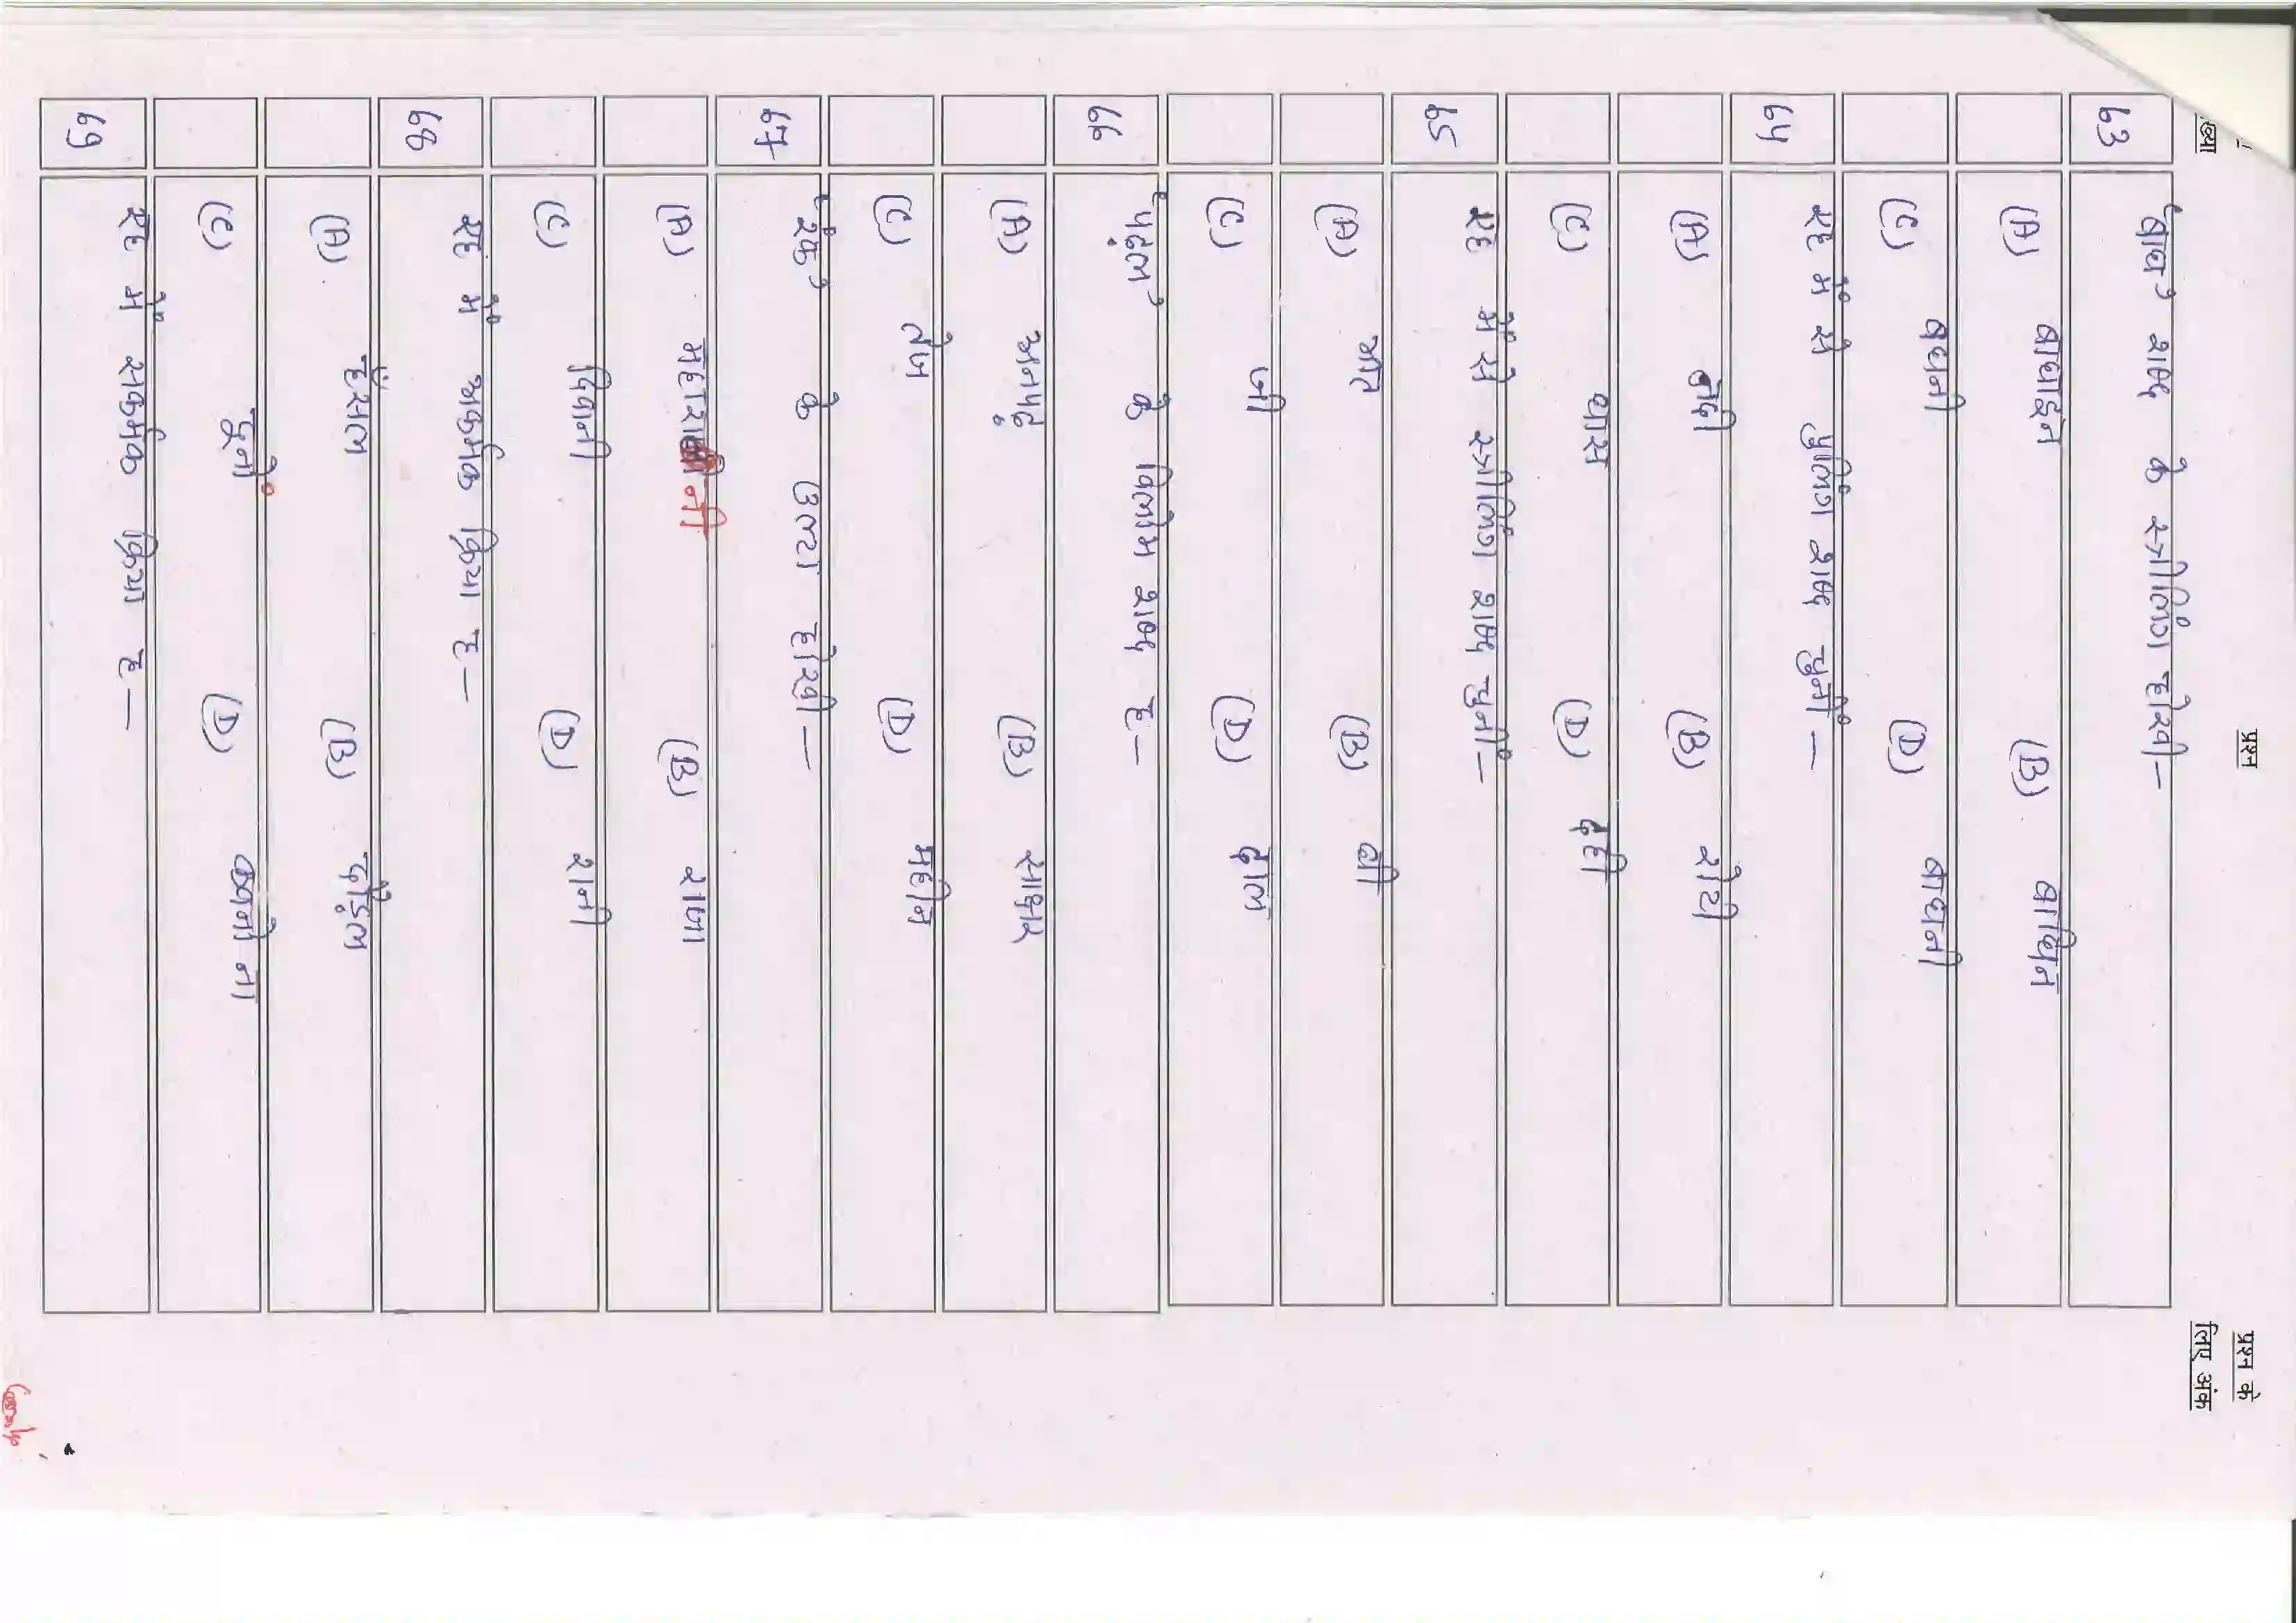 ख्या प्रश्न प्रश्न के
लिए अंक
63 'बाघ' शब्द के स्त्रीलिंग होखी—
(A) बाघाइन (B) बाघिन
(C) बघनी (D) बाघनी
64 एह में से पुलिंग शब्द चुनीं —
(A) नदी (B) रोटी
(C) घास (D) दही
65 एह में से स्त्रीलिंग शब्द चुनीं —
(A) भात (B) घी
(C) जौ (D) दाल
66 'पढ़ल' के विलोम शब्द ह —
(A) अनपढ़ (B) साक्षर
(C) तेज (D) महीन
67 'रंक' के उल्टा होखी —
(A) महारानी (B) राजा
(C) विरानी (D) रानी
68 एह में अकर्मक क्रिया ह —
(A) हँसल (B) दउड़ल
(C) दूनों (D) कवनो ना
69 एह में सकर्मक क्रिया ह —